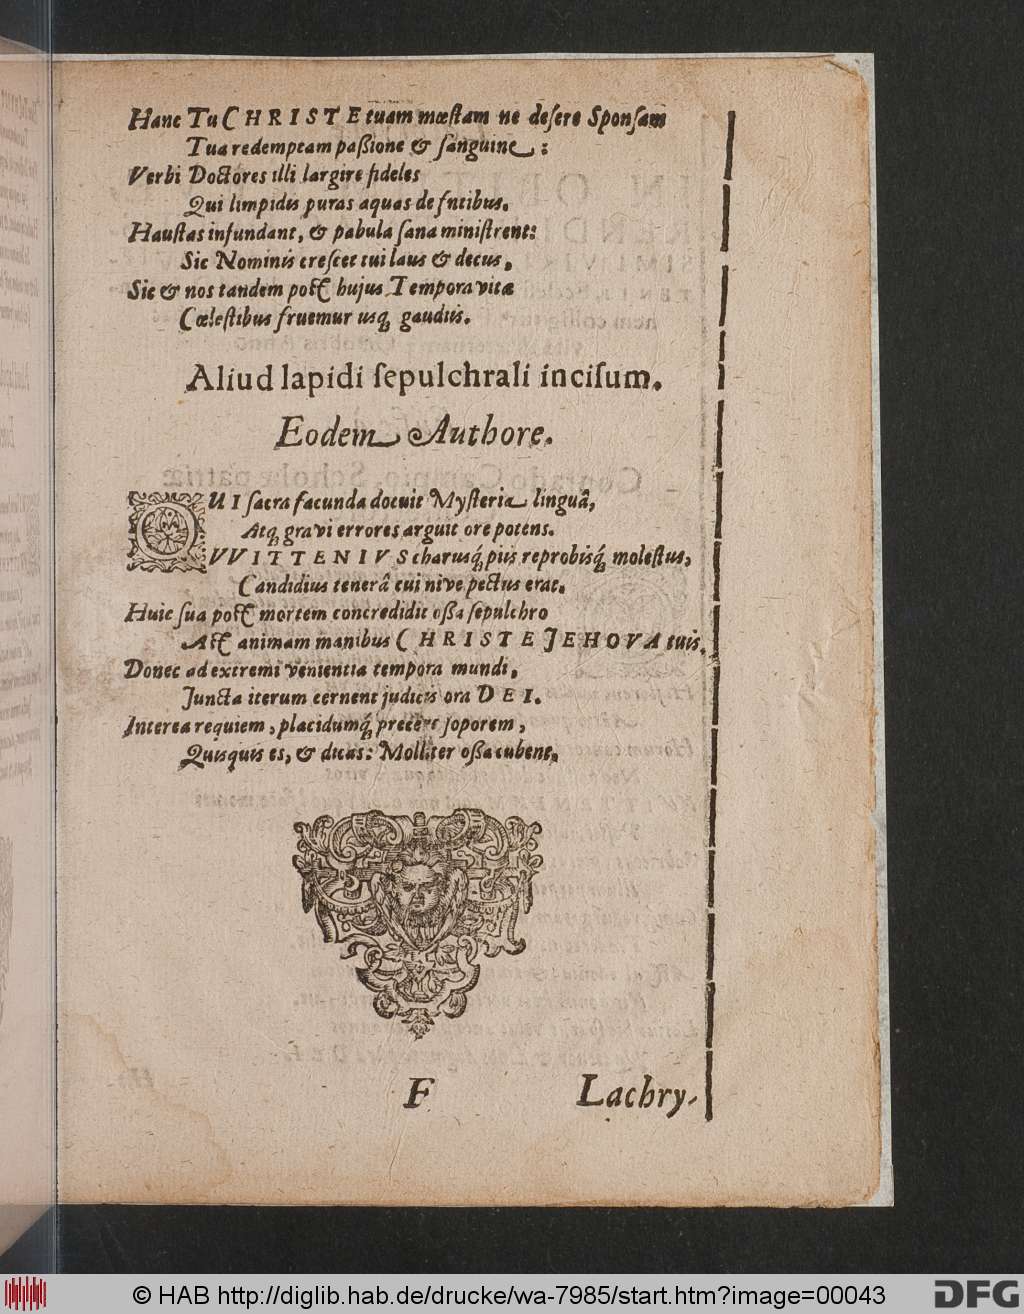 Hanc Tu CHRISTE tuam mœstam ne desere Sponsam
Tua redemptam paßione & sanguine:
Verbi Doctores illi largire fideles
Qui limpidis puras aquas de fntibus.
Haustas infundant, & pabula sana ministrent:
Sic Nominis crescet tui laus & decus,
Sic & nos tandem post hujus Tempora vitæ
Cœlestibus fruemur usq; gaudiis.
Aliud lapidi sepulchrali incisum.
Eodem Authore.
QUI sacra facunda docuit Mysteria linguâ,
Atq; gravi errores arguit ore potens.
VVITTENIVS charusq́; piis reprobisq́; molestus,
Candidius tenerâ cui nive pectus erat.
Huic sua post mortem concredidit oßa sepulchro
Ast animam manibus CHRISTE JEHOVA tuis.
Donec ad extremi venientia tempora mundi,
Juncta iterum cernent judicis ora DEI.
Interea requiem, placidumq́; precére soporem,
Quisquis es, & dicas: Molliter oßa cubent.
F Lachry-
© HAB http://diglib.hab.de/drucke/wa-7985/start.htm?image=00043
DFG